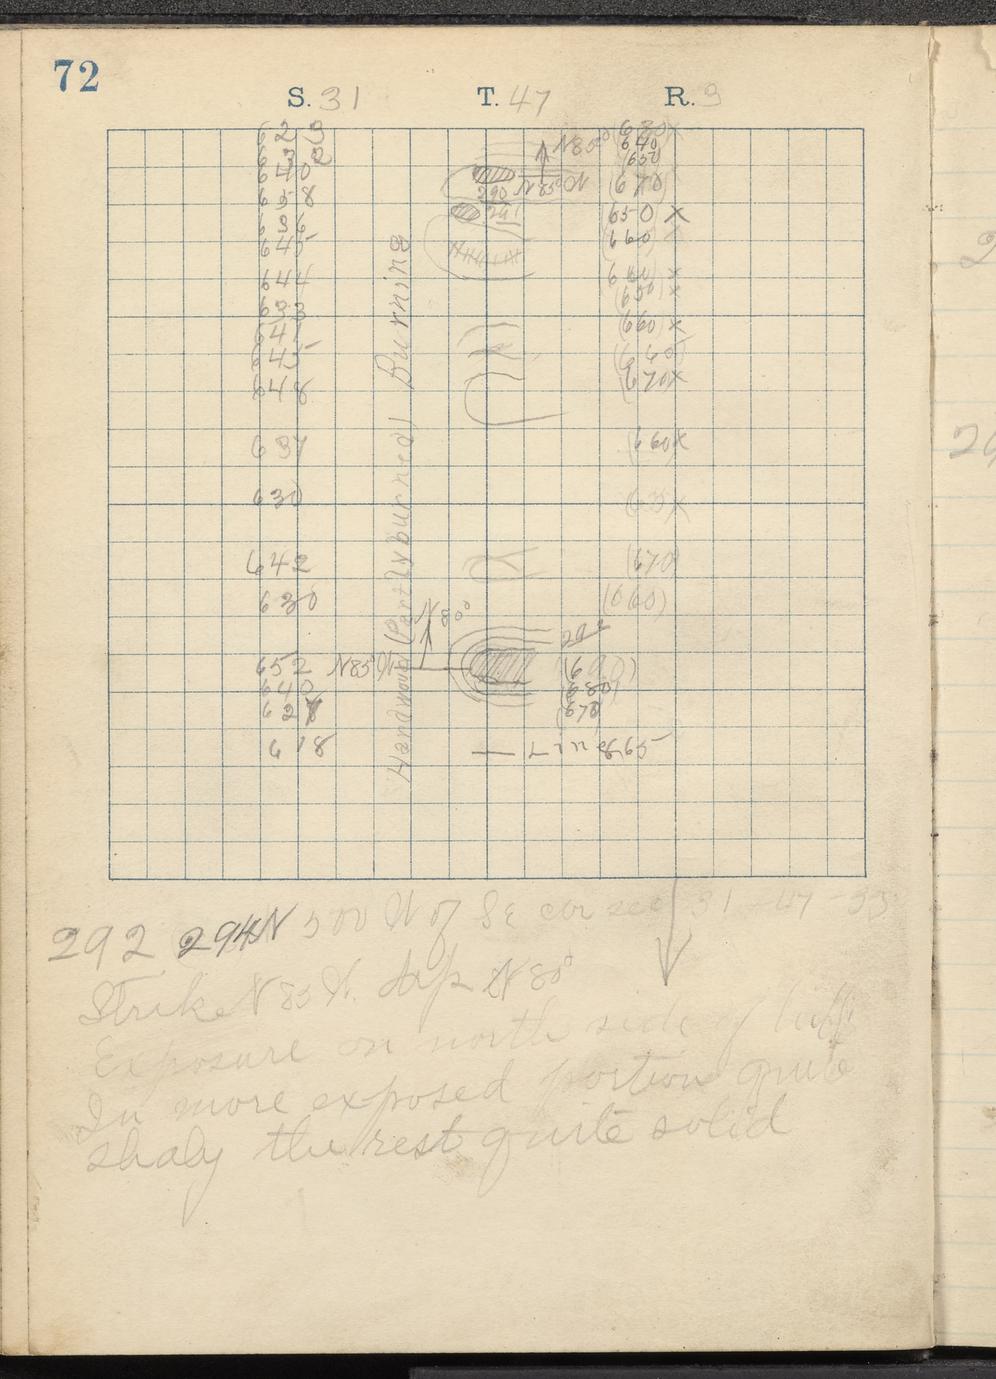 72
S. 31 T. 47 R. 3
623 (630) X
632 (640)
640 N 85° (650)
658 290 N 85° W (670)
636 291 650 X
645 (660)
644 (640) X
633 (650) X
641 (660) X
645 (640)
648 (670) X
637 (660) X
630 (635) X
642 (670)
630 (660)
N 80°
292
652 N 85° W (690)
640 (680)
627 (670)
618 Line 865
Hardwood (Partly burned) Burning
292 294N 500 W of SE cor sec 31-47-33
Strike N 85 W. dip N 80°
Exposure on north side of bluff
In more exposed portion quite
shaly the rest quite solid